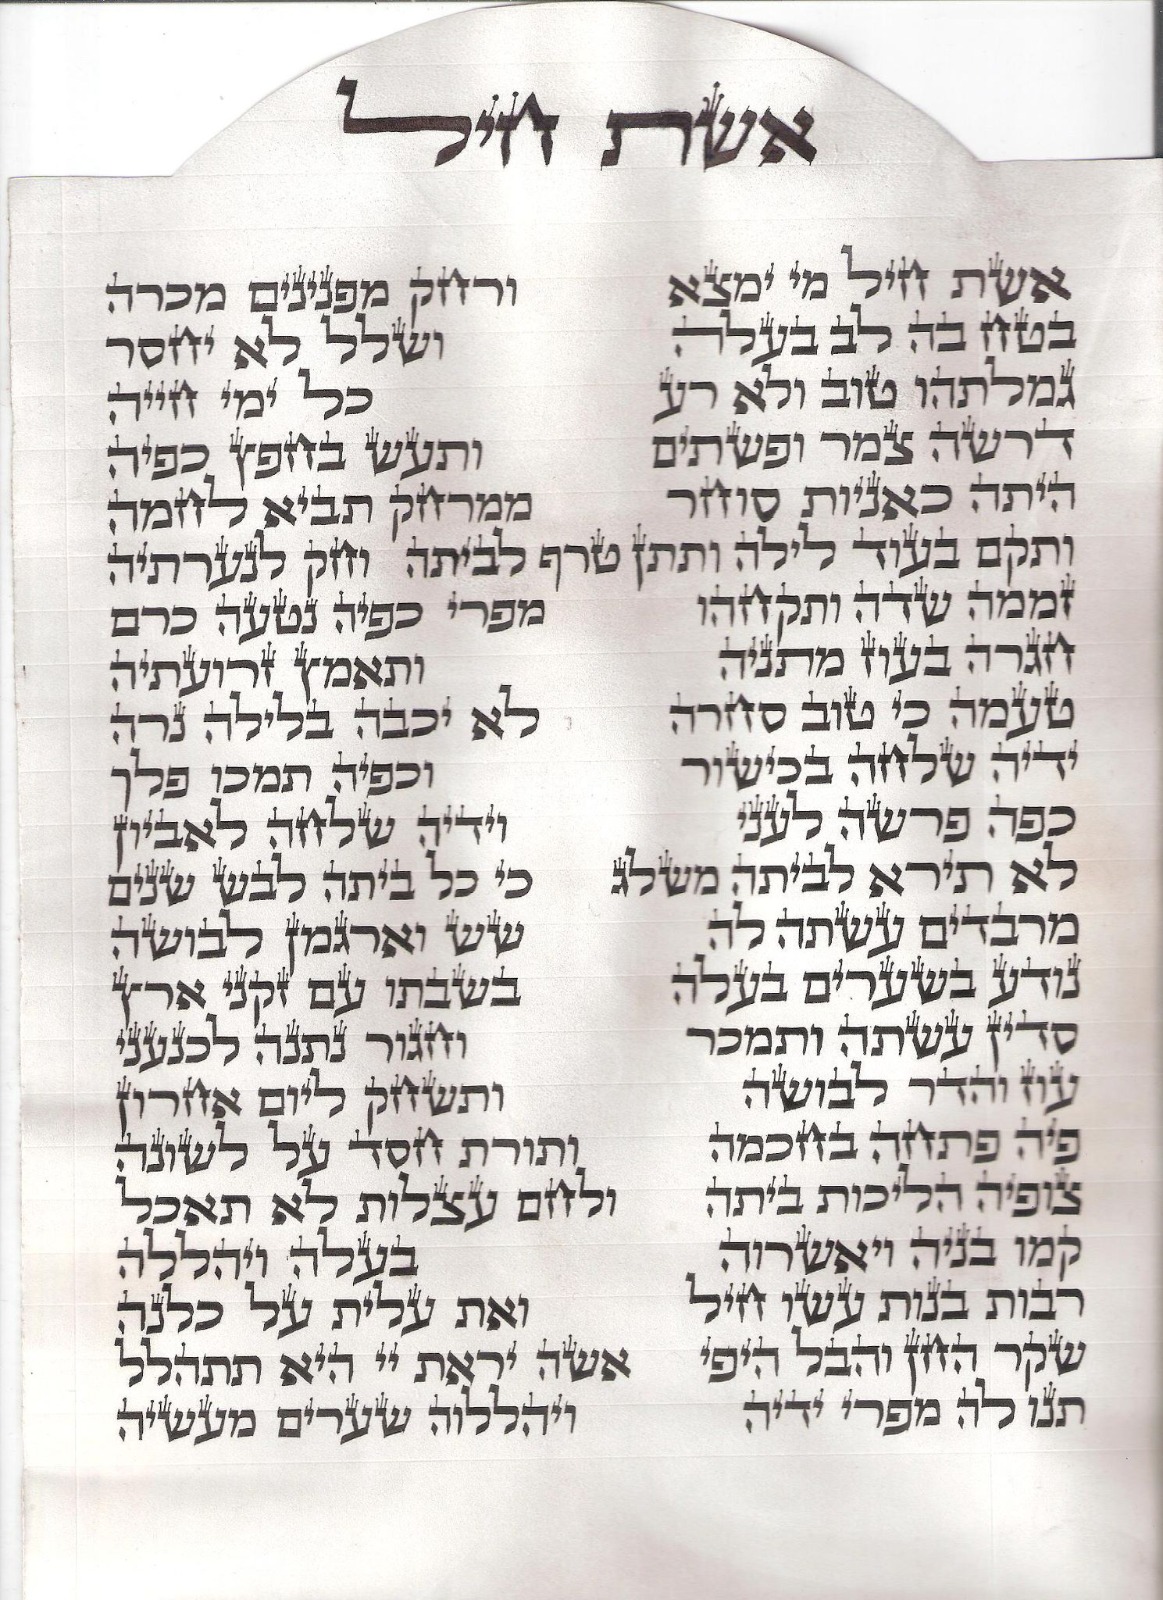 אשת חיל
אשת חיל מי ימצא ורחק מפנינים מכרה
בטח בה לב בעלה ושלל לא יחסר
גמלתהו טוב ולא רע כל ימי חייה
דרשה צמר ופשתים ותעש בחפץ כפיה
היתה כאניות סוחר ממרחק תביא לחמה
ותקם בעוד לילה ותתן טרף לביתה וחק לנערתיה
זממה שדה ותקחהו מפרי כפיה נטעה כרם
חגרה בעוז מתניה ותאמץ זרועתיה
טעמה כי טוב סחרה לא יכבה בלילה נרה
ידיה שלחה בכישור וכפיה תמכו פלך
כפה פרשה לעני וידיה שלחה לאביון
לא תירא לביתה משלג כי כל ביתה לבש שנים
מרבדים עשתה לה שש וארגמן לבושה
נודע בשערים בעלה בשבתו עם זקני ארץ
סדין עשתה ותמכר וחגור נתנה לכנעני
עוז והדר לבושה ותשחק ליום אחרון
פיה פתחה בחכמה ותורת חסד על לשונה
צופיה הליכות ביתה ולחם עצלות לא תאכל
קמו בניה ויאשרוה בעלה ויהללה
רבות בנות עשו חיל ואת עלית על כלנה
שקר החן והבל היפי אשה יראת יי היא תתהלל
תנו לה מפרי ידיה ויהללוה שערים מעשיה